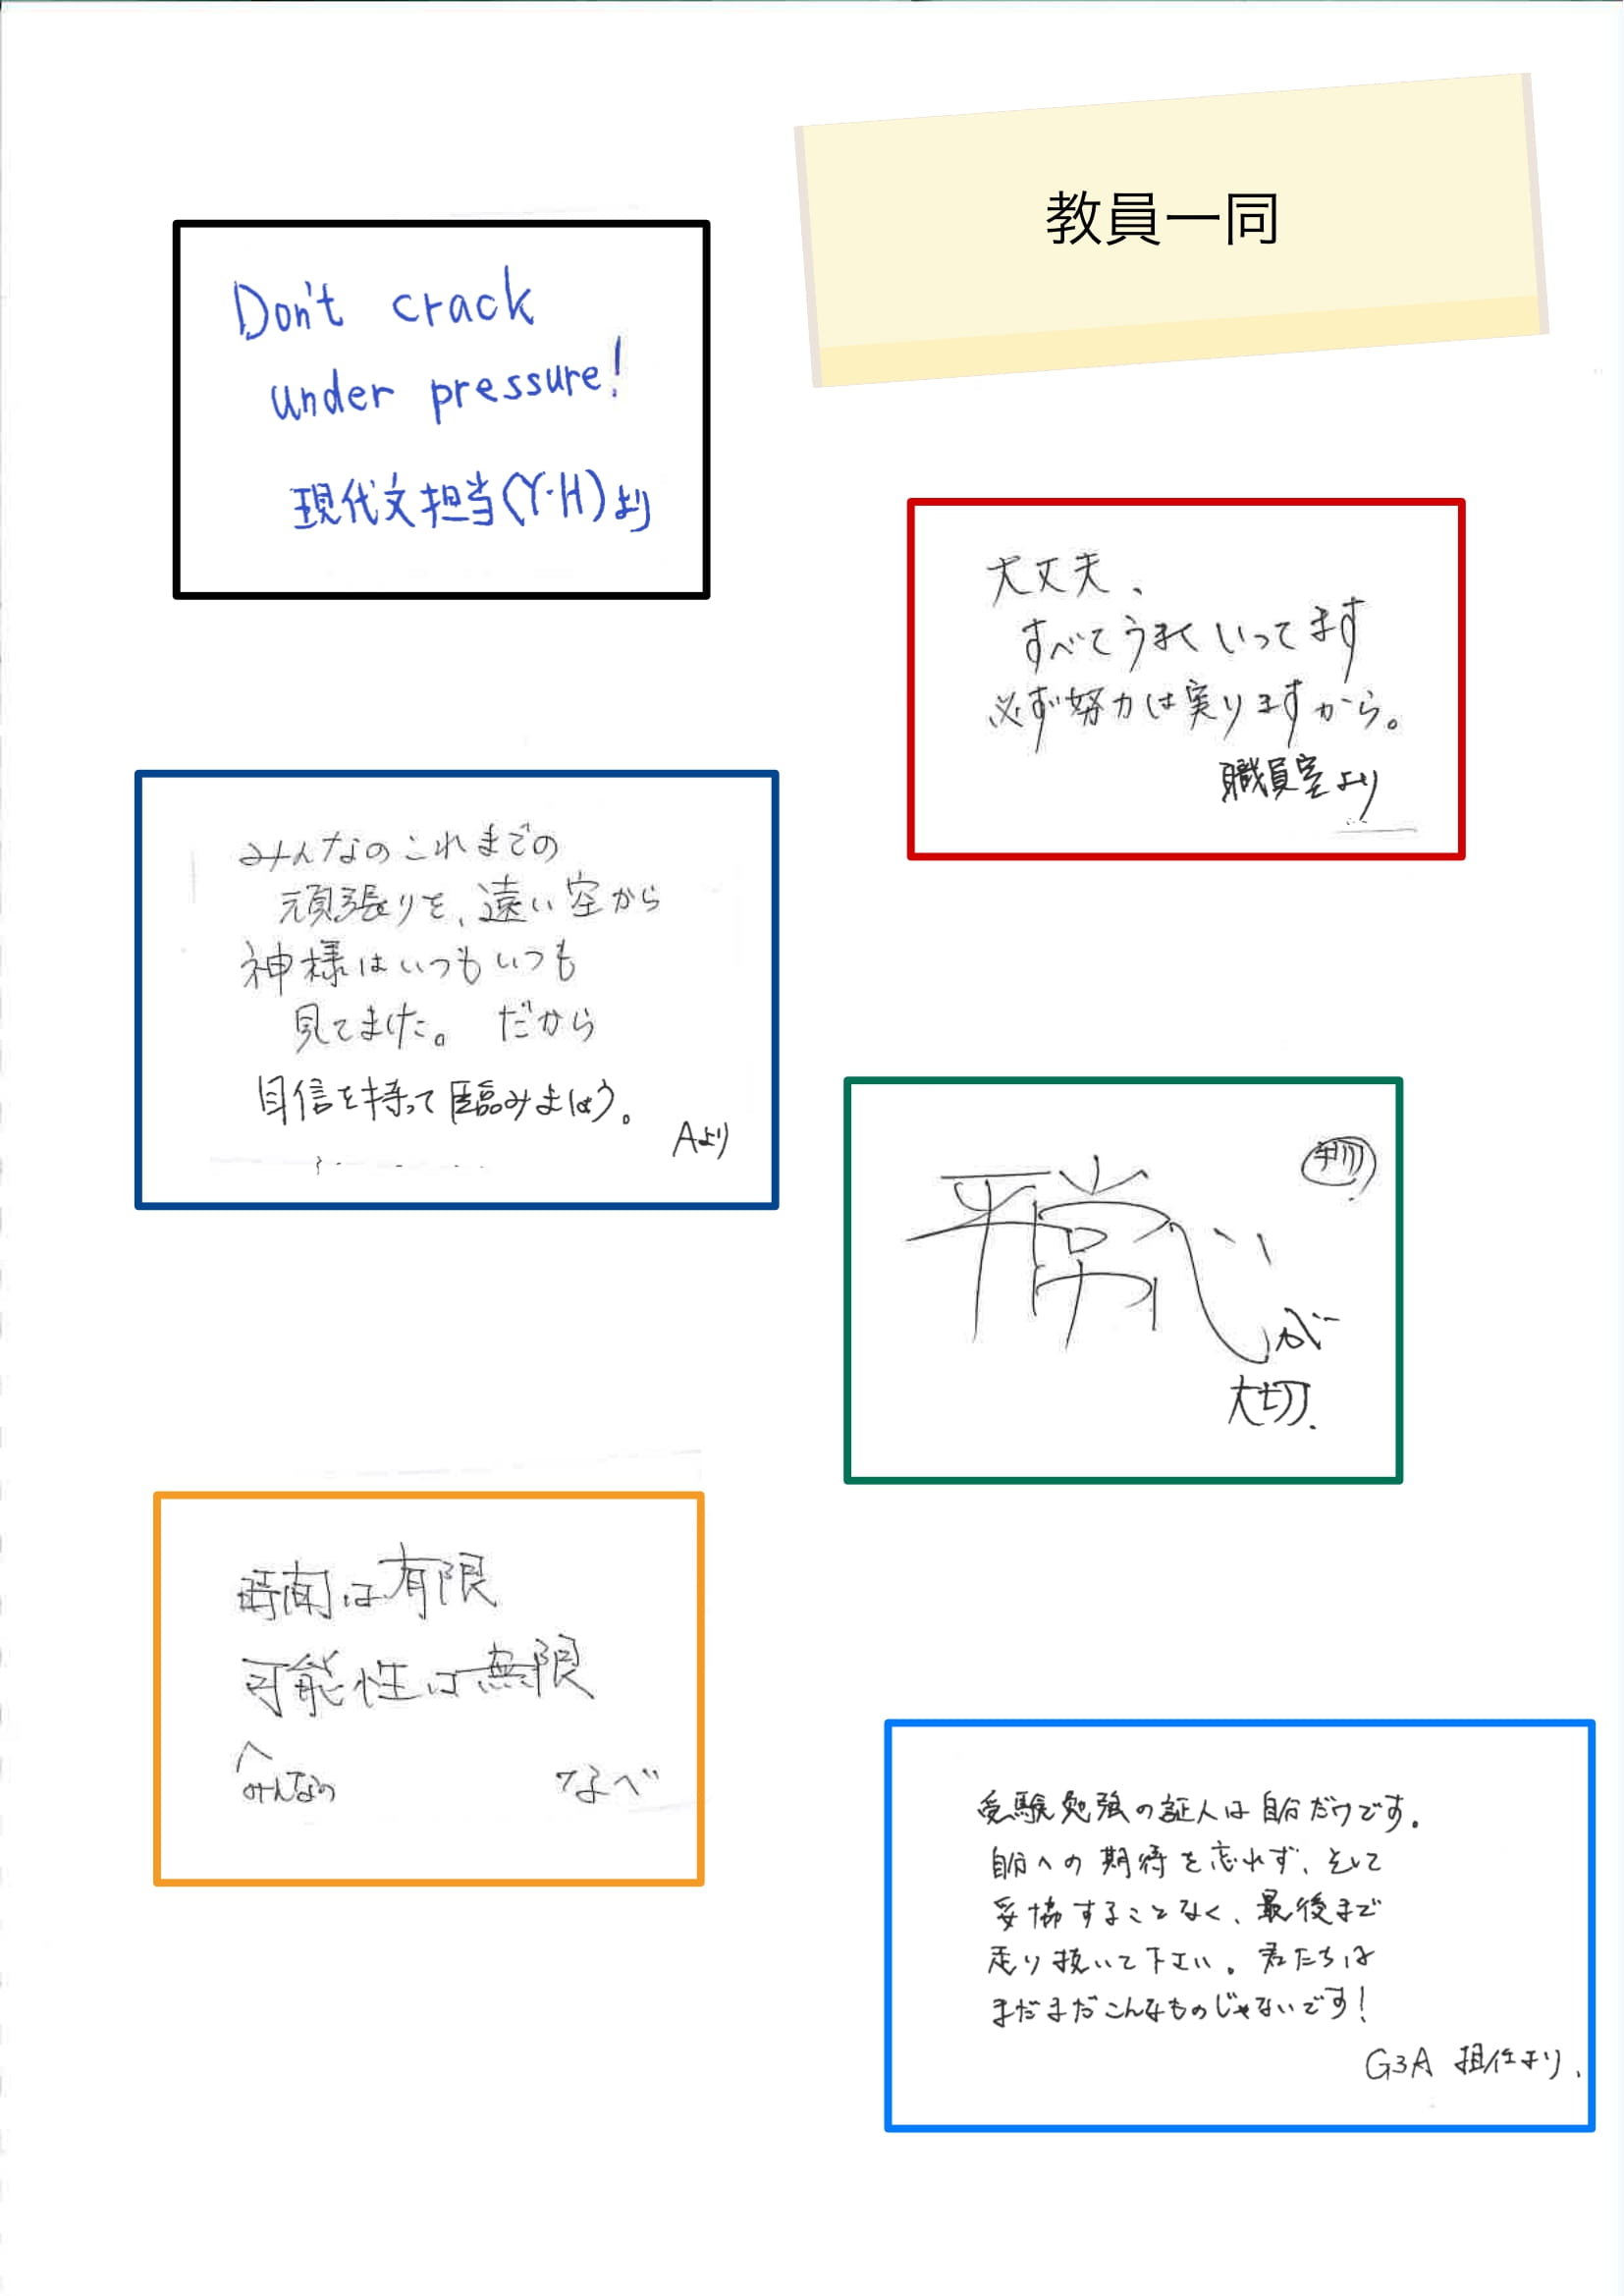 教員一同
Don't crack
under pressure!
現代文担当(Y・H)より
大丈夫、
すべてうまくいってます
必ず努力は実りますから。
職員室より
みんなのこれまでの
頑張りを、遠い空から
神様はいつもいつも
見てました。 だから
自信を持って臨みましょう。
Aより
平常心が
大切.
時間は有限
可能性は無限
みんなの
なべ
受験勉強の証人は自分だけです。
自分への期待を忘れず、そして
妥協することなく、最後まで
走り抜いて下さい。君たちは
まだまだこんなものじゃないです!
G3A 担任より.